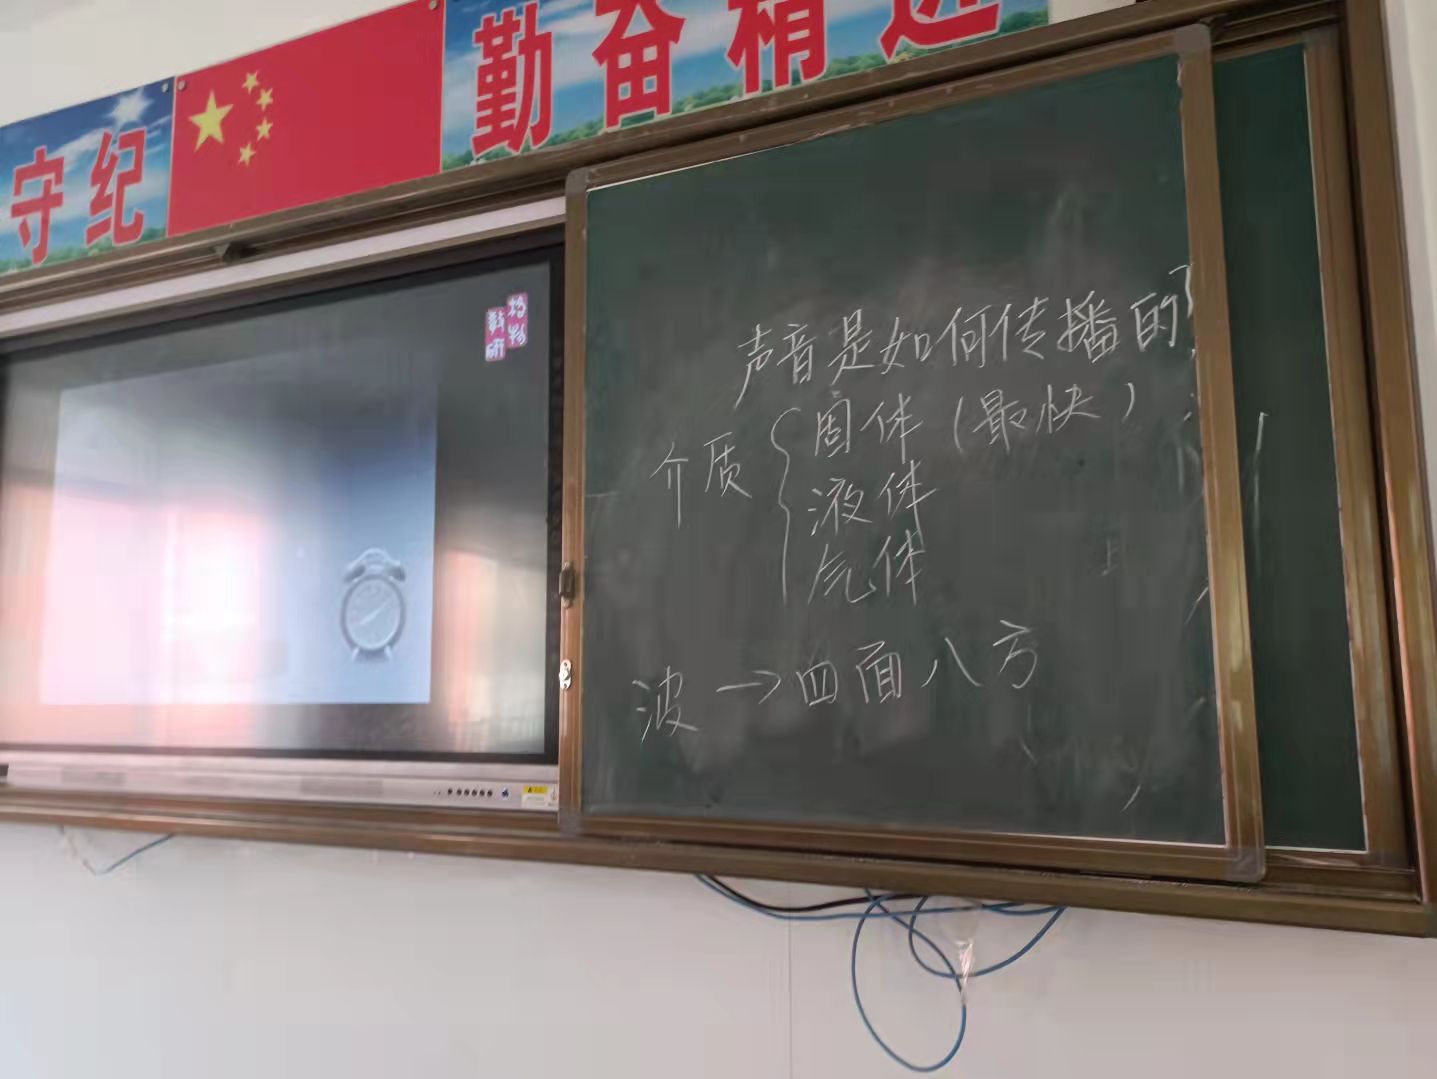 守纪
勤奋精进
格物
教研
声音是如何传播的
介质
固体（最快）
液体
气体
波→四面八方